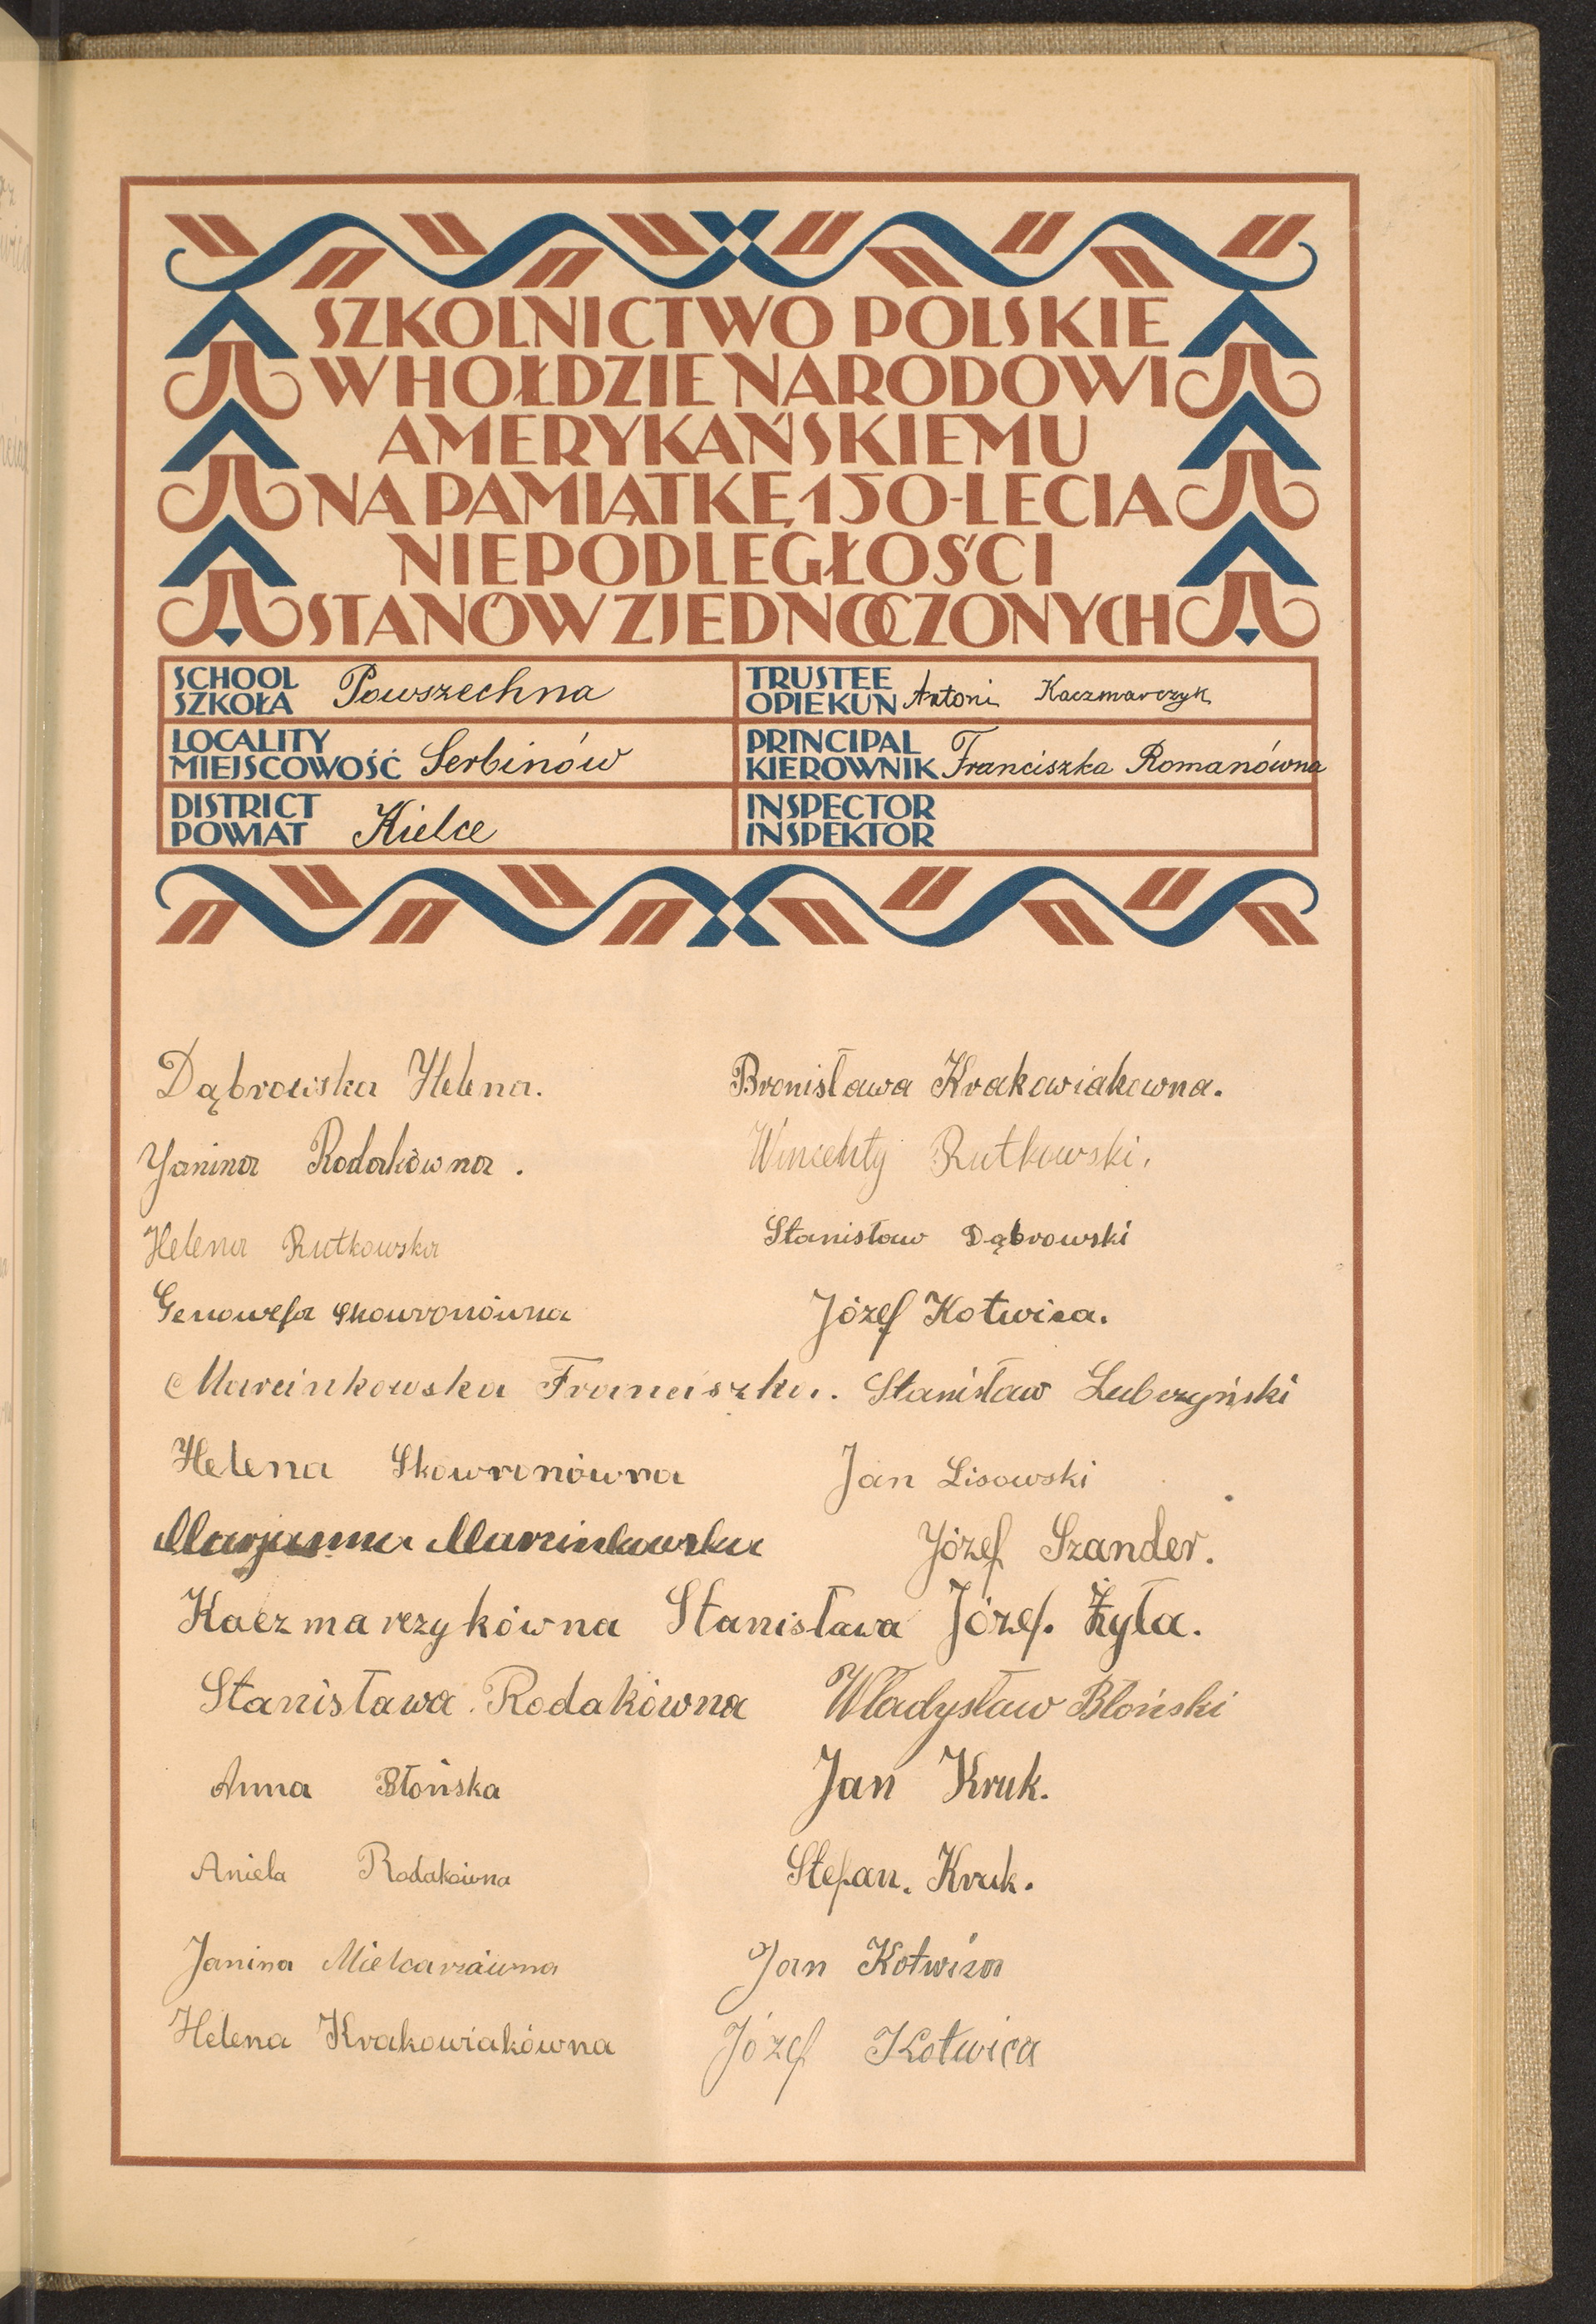 SZKOLNICTWO POLSKIE
W HOŁDZIE NARODOWI
AMERYKAŃSKIEMU
NA PAMIĄTKĘ 150-LECIA
NIEPODLEGŁOŚCI
STANÓW ZJEDNOCZONYCH
SCHOOL
SZKOŁA Powszechna
TRUSTEE
OPIEKUN Antoni Kaczmarczyk
LOCALITY
MIEJSCOWOŚĆ Serbinów
PRINCIPAL
KIEROWNIK Franciszka Romanówna
DISTRICT
POWIAT Kielce
INSPECTOR
INSPEKTOR
Dąbrowska Helena.
Bronisława Krakowiakowna.
Janina Rodakówna.
Wincenty Rutkowski.
Helena Rutkowska
Stanisław Dąbrowski
Genowefa Skowronówna
Józef Kotwica.
Marcinkowska Franciszka.
Stanisław Lubczyński
Helena Skowronówna
Jan Lisowski
Marjanna Marcinkowska
Józef Szander.
Kaczmarczykówna Stanisława
Józef. Żyła.
Stanisława Rodakówna
Władysław Błoński
Anna Błońska
Jan Kruk.
Aniela Rodakówna
Stefan. Kruk.
Janina Mielcarzówna
Jan Kotwica
Helena Krakowiakówna
Józef Kotwica